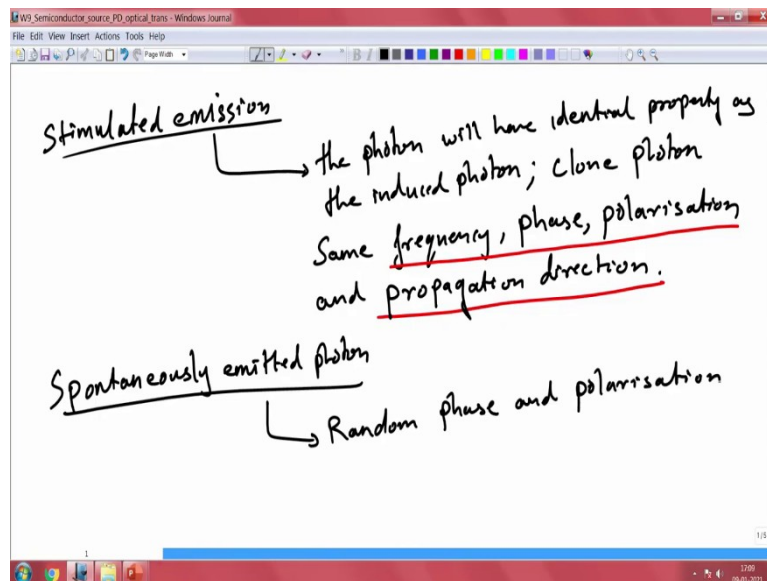 W9_Semiconductor_source_PD_optical_trans - Windows Journal
File Edit View Insert Actions Tools Help
Page Width
Stimulated emission
the photon will have identical property as
the induced photon; clone photon
Same frequency, phase, polarisation
and propagation direction.
Spontaneously emitted photon
Random phase and polarisation
1/5
1
17:09
09-01-2021